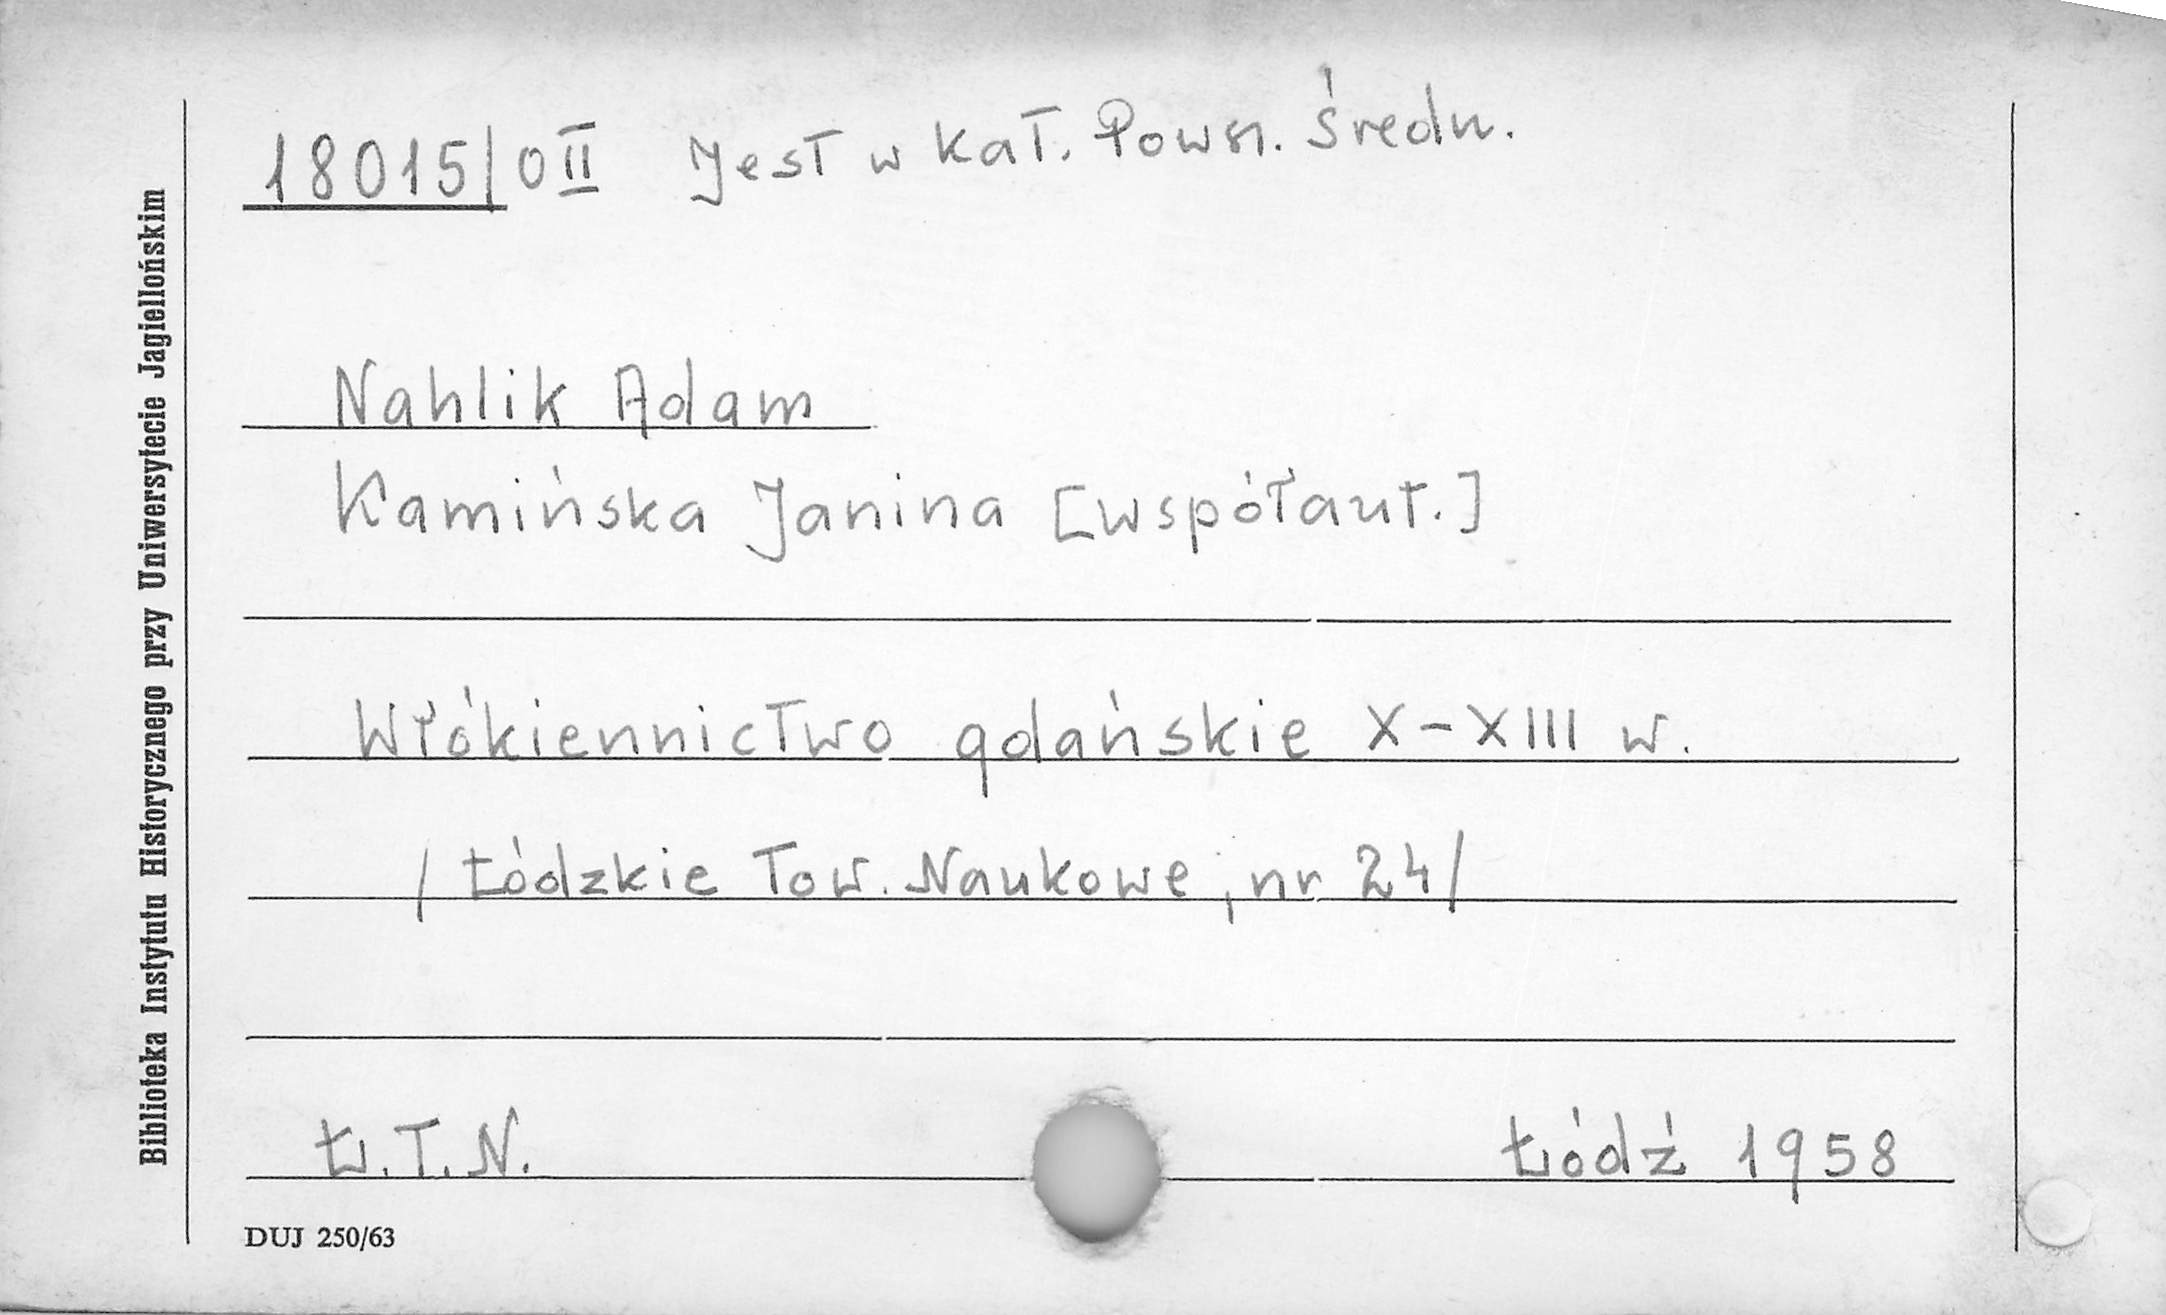 18015/0II Jest w kat. Powsz. średn.
Nahlik Adam
Kamińska Janina [współaut.]
Włókiennictwo gdańskie X-XIII w.
/Łódzkie Tow. Naukowe, nr 24/
Ł.T.N. Łódź 1958
DUJ 250/63
Biblioteka Instytutu Historycznego przy Uniwersytecie Jagiellońskim